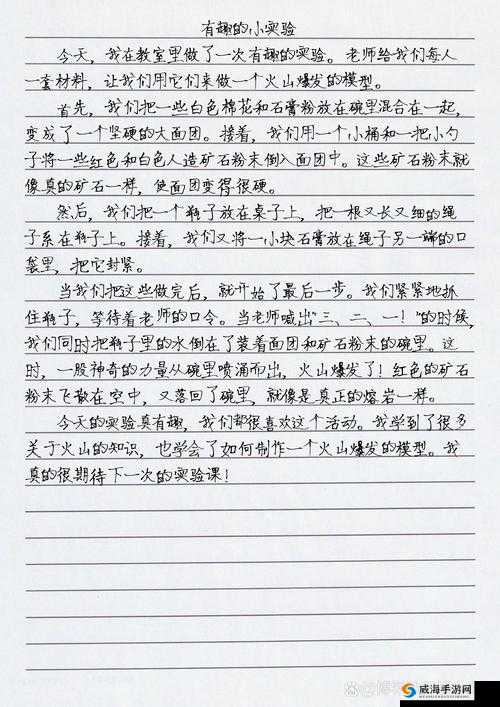 有趣的小实验
今天，我在教室里做了一次有趣的实验。老师给我们每人
一套材料，让我们用它们来做一个火山爆发的模型。
首先，我们把一些白色棉花和石膏粉放在碗里混合在一起，
变成了一个坚硬的大面团。接着，我们用一个小桶和一把小勺
子将一些红色和白色人造矿石粉末倒入面团中。这些矿石粉末就
像真的矿石一样，使面团变得很硬。
然后，我们把一个瓶子放在桌子上，把一根又长又细的绳
子系在瓶子上。接着，我们又将一小块石膏放在绳子另一端的口
袋里，把它封紧。
当我们把这些做完后，就开始了最后一步。我们紧紧地抓
住瓶子，等待着老师的口令。当老师喊出“三、二、一！”的时候，
我们同时把瓶子里的水倒在了装着面团和矿石粉末的碗里。这
时，一股神奇的力量从碗里喷涌而出，火山爆发了！红色的矿石
粉末飞散在空中，又落回了碗里，就像是真正的熔岩一样。
今天的实验真有趣，我们都很喜欢这个活动。我学到了很多
关于火山的知识，也学会了如何制作一个火山爆发的模型。我
真的很期待下一次的实验课！
威海手游网